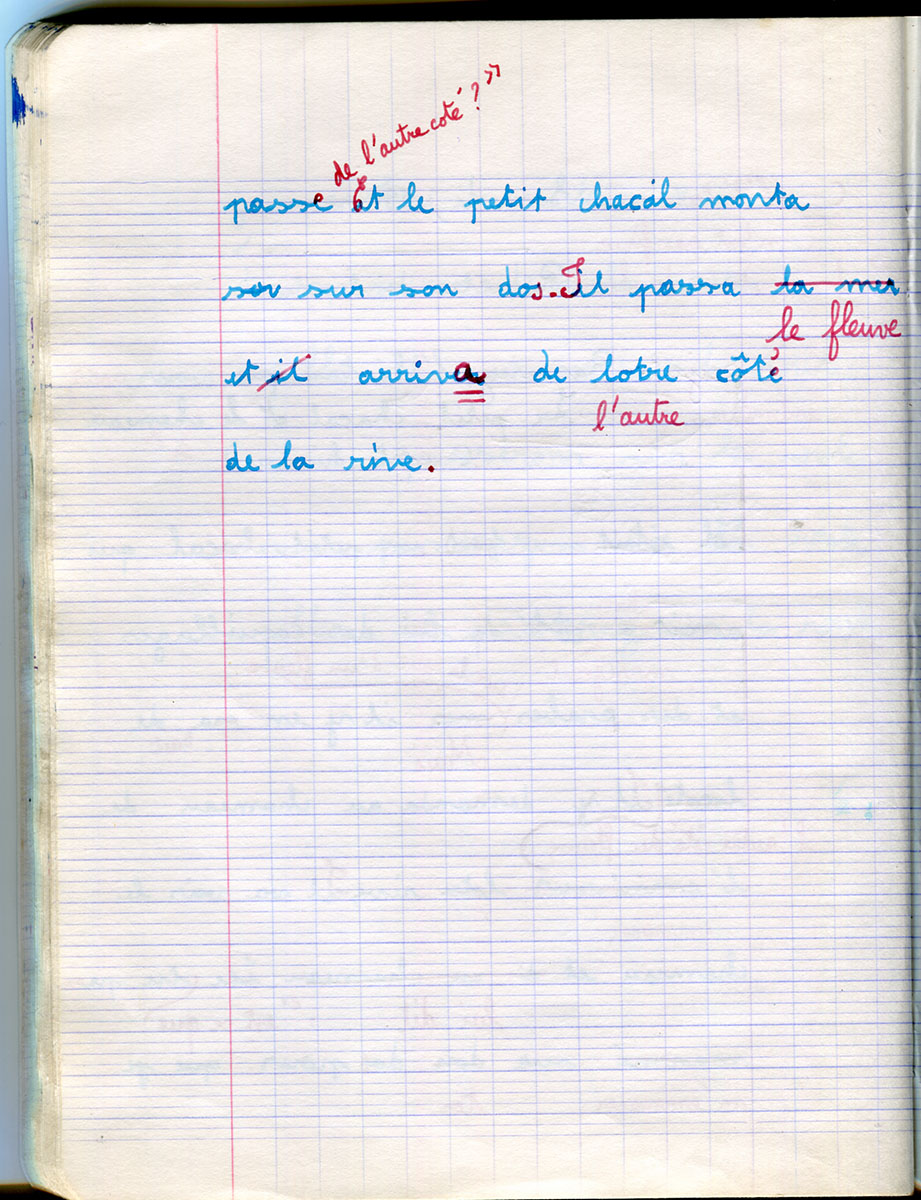 de l'autre coté ? »
passe Et le petit chacal monta
sor sur son dos. Il passa la mer
le fleuve
et il arriva de lotre côté
l'autre
de la rive.